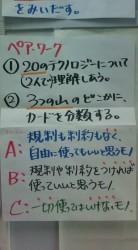 をみいだす。
ペア・ワーク
① 20のテクノロジーについて
2人で理解しあう。
② 3つの山のどこかに、
カードを分類する。
A: 規制も制約もなく、
自由に使ってもいいと思うモノ
B: 規制や制約をつければ
使ってもいいと思うモノ
C: 一切使ってはいけないモノ!